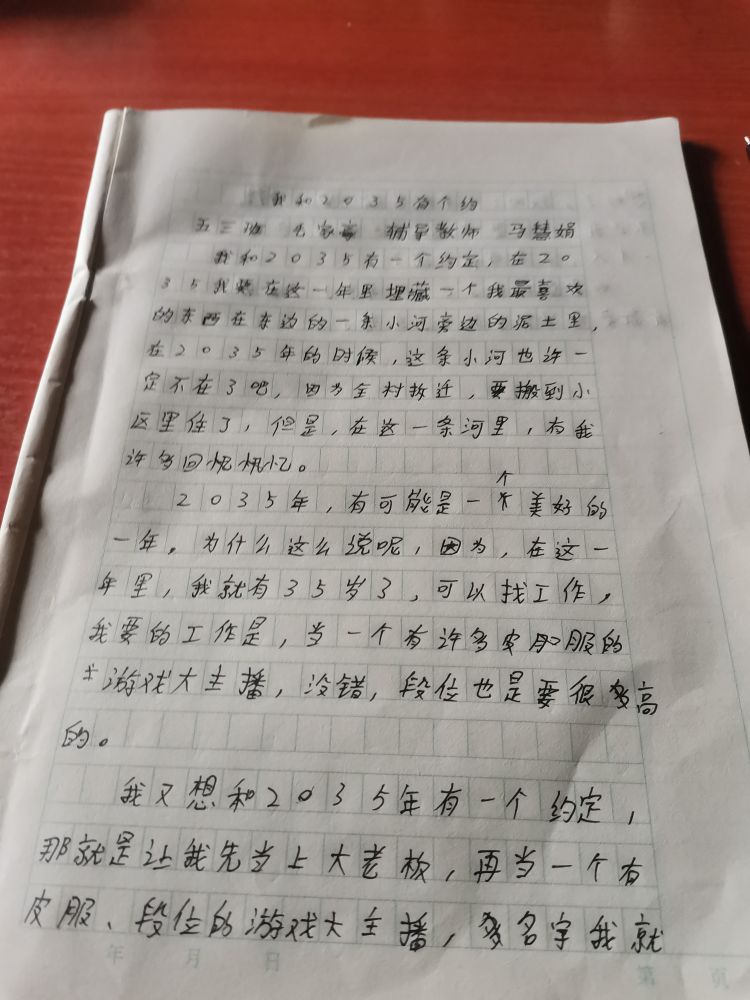 我和2035有个约
五三班 辅导教师 马慧娟
我和2035有一个约定，在20
35我想在这一年里埋藏一个我最喜欢
的东西在东边的一条小河旁边的泥土里，
在2035年的时候，这条小河也许一
定不在了吧，因为全村拆迁，要搬到小
区里住了，但是，在这一条河里，有我
许多回忆忆。
2035年，有可能是一个美好的
一年。为什么这么说呢，因为，在这一
年里，我就有35岁了，可以找工作，
我要的工作是，当一个有许多皮服的
游戏大主播，没错，段位也是要很多高
的。
我又想和2035年有一个约定，
那就是让我先当上大老板，再当一个有
皮服、段位的游戏大主播，多名字我就
年 月 日
第 页